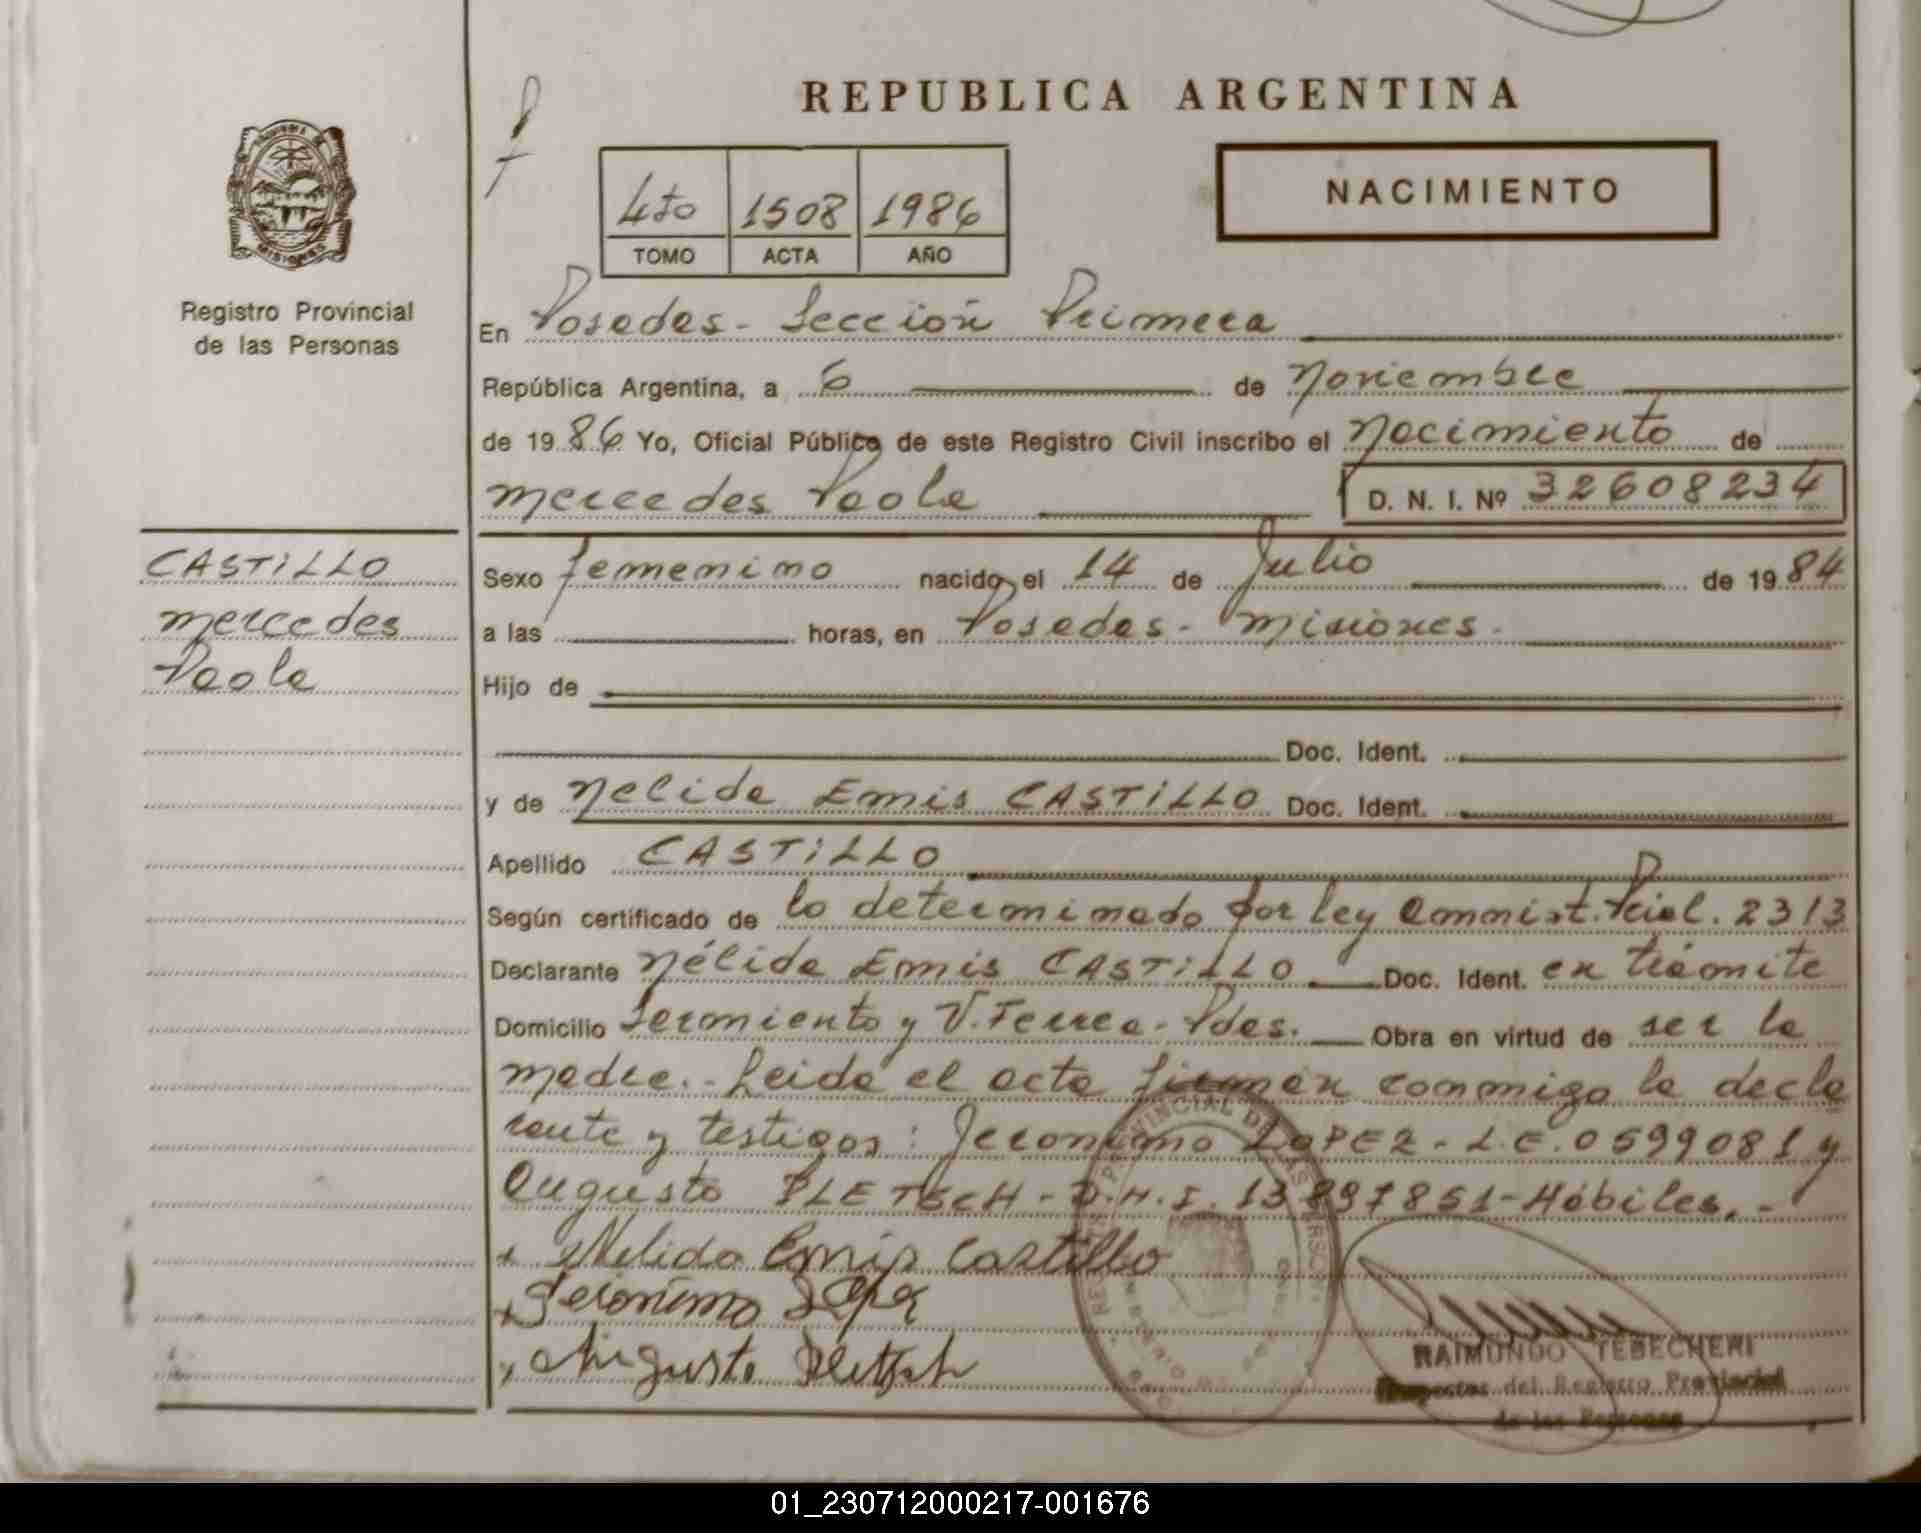 REPUBLICA ARGENTINA
MISIONES
Registro Provincial
de las Personas
4to 1508 1986
TOMO ACTA AÑO
NACIMIENTO
En Posadas - Sección Primera
República Argentina, a 6 de Noviembre
de 1986 Yo, Oficial Público de este Registro Civil inscribo el Nacimiento de
Mercedes Paola D. N. I. Nº 32608234
CASTILLO
Mercedes
Paola
Sexo femenino nacido el 14 de Julio de 1984
a las horas, en Posadas - Misiones.
Hijo de
Doc. Ident.
y de Nelida Emis CASTILLO Doc. Ident.
Apellido CASTILLO
Según certificado de lo determinado por ley Amnist. Pcial. 2313
Declarante Nélida Emis CASTILLO Doc. Ident. en trámite
Domicilio Sarmiento y V. Ferrea - Pdas. Obra en virtud de ser la
madre. - Leida el acta firman conmigo la decla
rante y testigos: Jeronimo LOPEZ - L.E. 0599081 y
Augusto PLETSCH - D.N.I. 13897851 - Hábiles. -
+ Nelida Emis Castillo
+ Jeronimo Lopez
+ Augusto Pletsch
RAIMUNDO TEBECHERI
Inspector del Registro Provincial
de las Personas
01_230712000217-001676